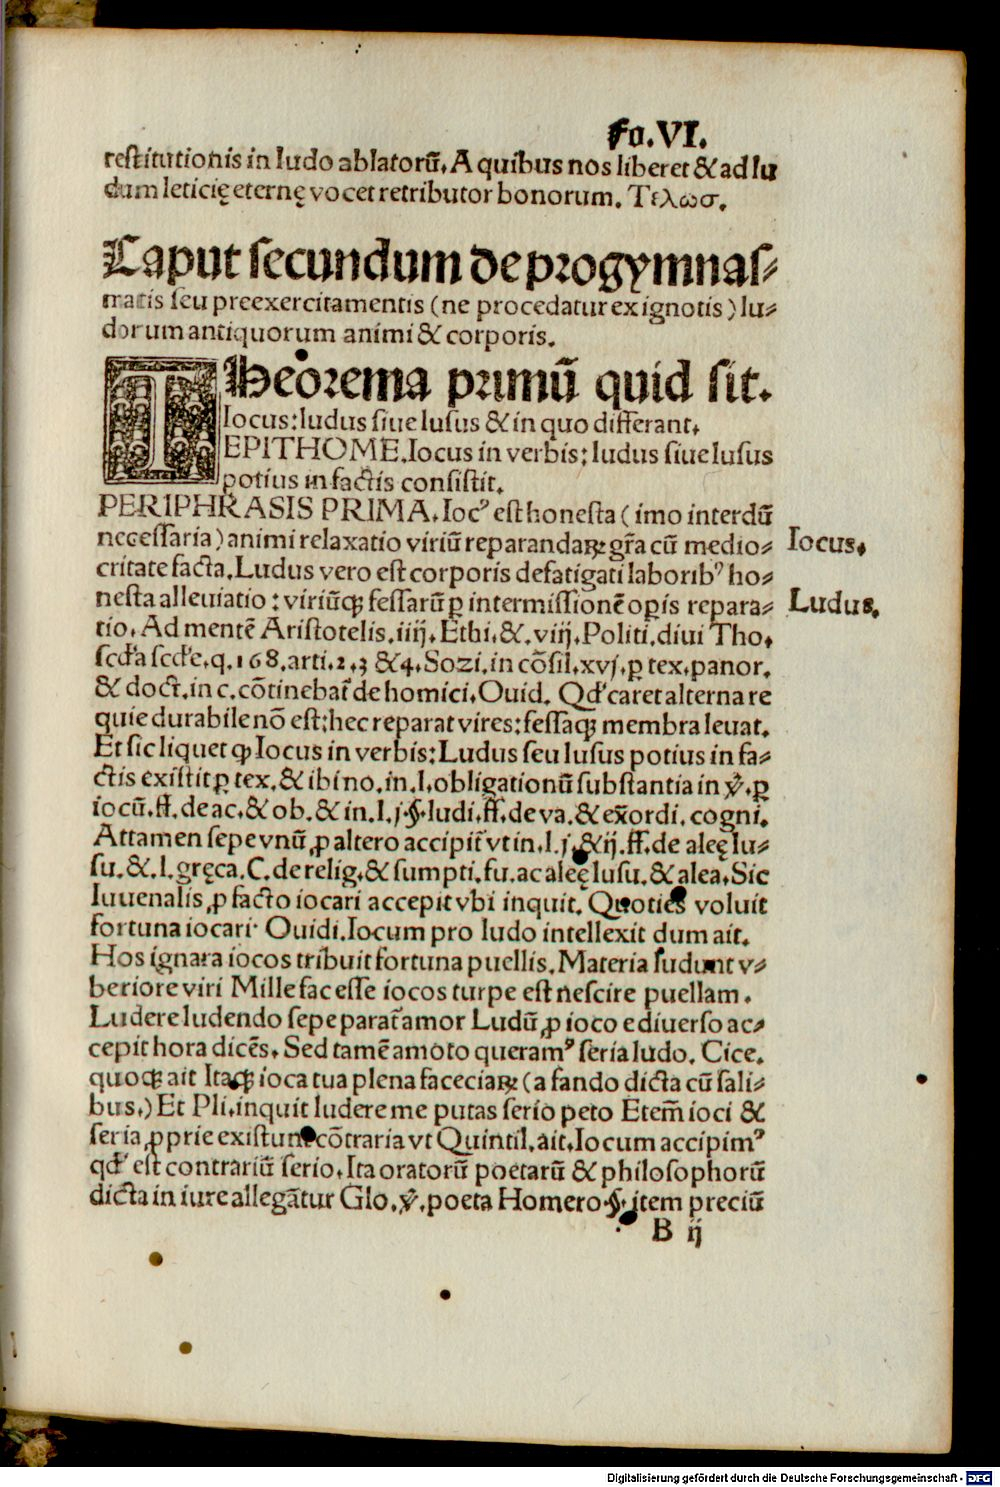 Fo.VI.
restitutionis in ludo ablatorū. A quibus nos liberet & ad lu
dum leticię eternę vocet retributor bonorum. Τελωσ.
Caput secundum de progymnas⸗
matis seu preexercitamentis (ne procedatur ex ignotis) lu⸗
dorum antiquorum animi & corporis.
THeorema primū quid sit.
Iocus: ludus siue lusus & in quo differant.
EPITHOME. Iocus in verbis: ludus siue lusus
potius in factis consistit.
PERIPHRASIS PRIMA. Iocꝰ est honesta (imo interdū
necessaria) animi relaxatio viriū reparandaꝝ gr̄a cū medio⸗
Iocus.
critate facta. Ludus vero est corporis defatigati laboribꝰ ho⸗
nesta alleuiatio: viriūqꝫ fessarū ꝑ intermissionē oꝑis repara⸗
Ludus.
tio. Ad mentē Aristotelis. iiij. Ethi. &. viij. Politi. diui Tho.
scd̓a scd̓e. q. 168. arti. 2. 3 & 4. Sozi. in cōsil. xvj. ꝑ tex. panor.
& doct. in c. cōtinebat̄ de homici. Ouid. Qd̓ caret alterna re
quie durabile nō est: hec reparat vires: fessaqꝫ membra leuat.
Et sic liquet ꝙ Iocus in verbis: Ludus seu lusus potius in fa⸗
ctis existit ꝑ tex. & ibi no. in. l. obligationū substantia in ℣. ꝑ
iocū. ff. de ac. & ob. & in. l. j. §. ludi. ff. de va. & ex̄ordi. cogni.
Attamen sepe vnū ꝓ altero accipit̄ vt in. l. j. & ij. ff. de aleę lu⸗
su. &. l. gręca. C. de relig. & sumpti. fu. ac aleę lusu. & alea. Sic
Iuuenalis ꝓ facto iocari accepit vbi inquit. Quoties voluit
fortuna iocari· Ouidi. Iocum pro ludo intellexit dum ait.
Hos ignara iocos tribuit fortuna puellis. Materia ludunt v⸗
beriore viri Mille fac esse iocos turpe est nescire puellam.
Ludere ludendo sepe parat̄ amor Ludū ꝓ ioco e diuerso ac⸗
cepit hora dicēs. Sed tamē amoto queramꝰ seria ludo. Cice.
quoqꝫ ait Itaqꝫ ioca tua plena faceciaꝝ (a fando dicta cū sali⸗
bus.) Et Pli. inquit ludere me putas serio peto Etem̄ ioci &
seria ꝓprie existunt cōtraria vt Quintil. ait. Iocum accipimꝰ
qd̓ est contrariū serio. Ita oratorū poetarū & philosophorū
dicta in iure allegātur Glo. ℣. poeta Homero §. item preciū
B ij
Digitalisierung gefördert durch die Deutsche Forschungsgemeinschaft - DFG